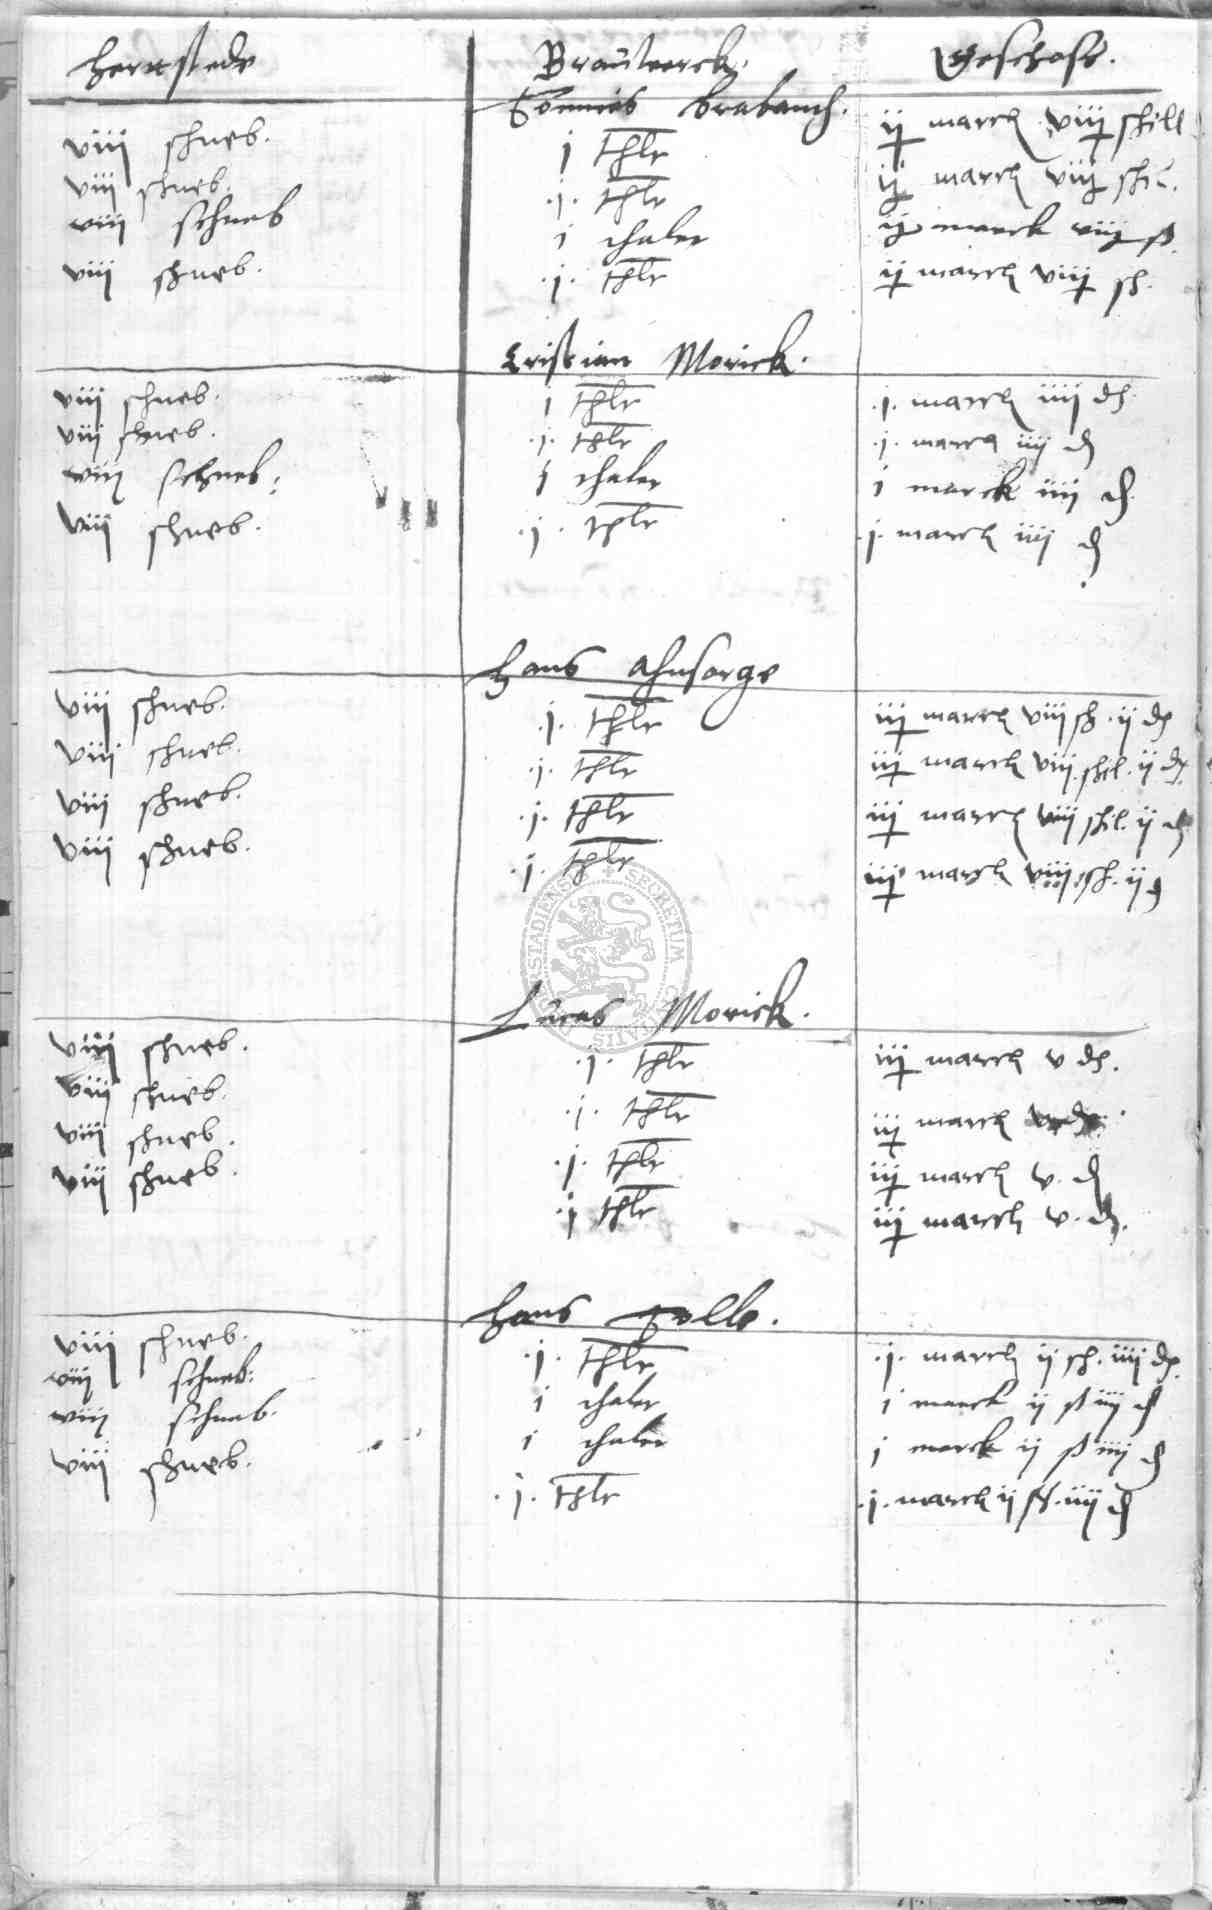 herttstede Brauwerck. Geschoss.
Tonnies brabandt.
viii schneb. j thlr ij march viij schill
viii schneb. .j. thlr ij march viij schil.
viii schneb i thaler ij marck viij ß
viii schneb. .j. thlr ij march viij sch.
Cristian Morick.
viii schneb. j thlr .j. march iiij d
viii schneb. .j. thlr .j. march iiij d
viii schneb. i thaler i marck iiij d
viii schneb. .j. thlr .j. march iiij d
Hans ahnsorge
viii schneb. .j. thlr iij march viii sch. ij d
viii schneb. .j. thlr iij march viii schil. ij d
viii schneb. .j. thlr iij march viii schil. ij d
viii schneb. .j. thlr iij march viii sch. ij d
Lucas Morick.
viii schneb. .j. thlr iij march v d.
viii schneb. .j. thlr iij march v d.
viii schneb. .j. thlr iij march v. d
viii schneb. .j. thlr iij march v. d.
Hans Tolle.
viii schneb. .j. thlr .j. march ij sch. iiij d
viii schneb. i thaler i marck ij ß iiij d
viii schneb. i thaler i marck ij ß iiij d
viii schneb. .j. thlr .j. march ij sch. iiij d
SECRETUM